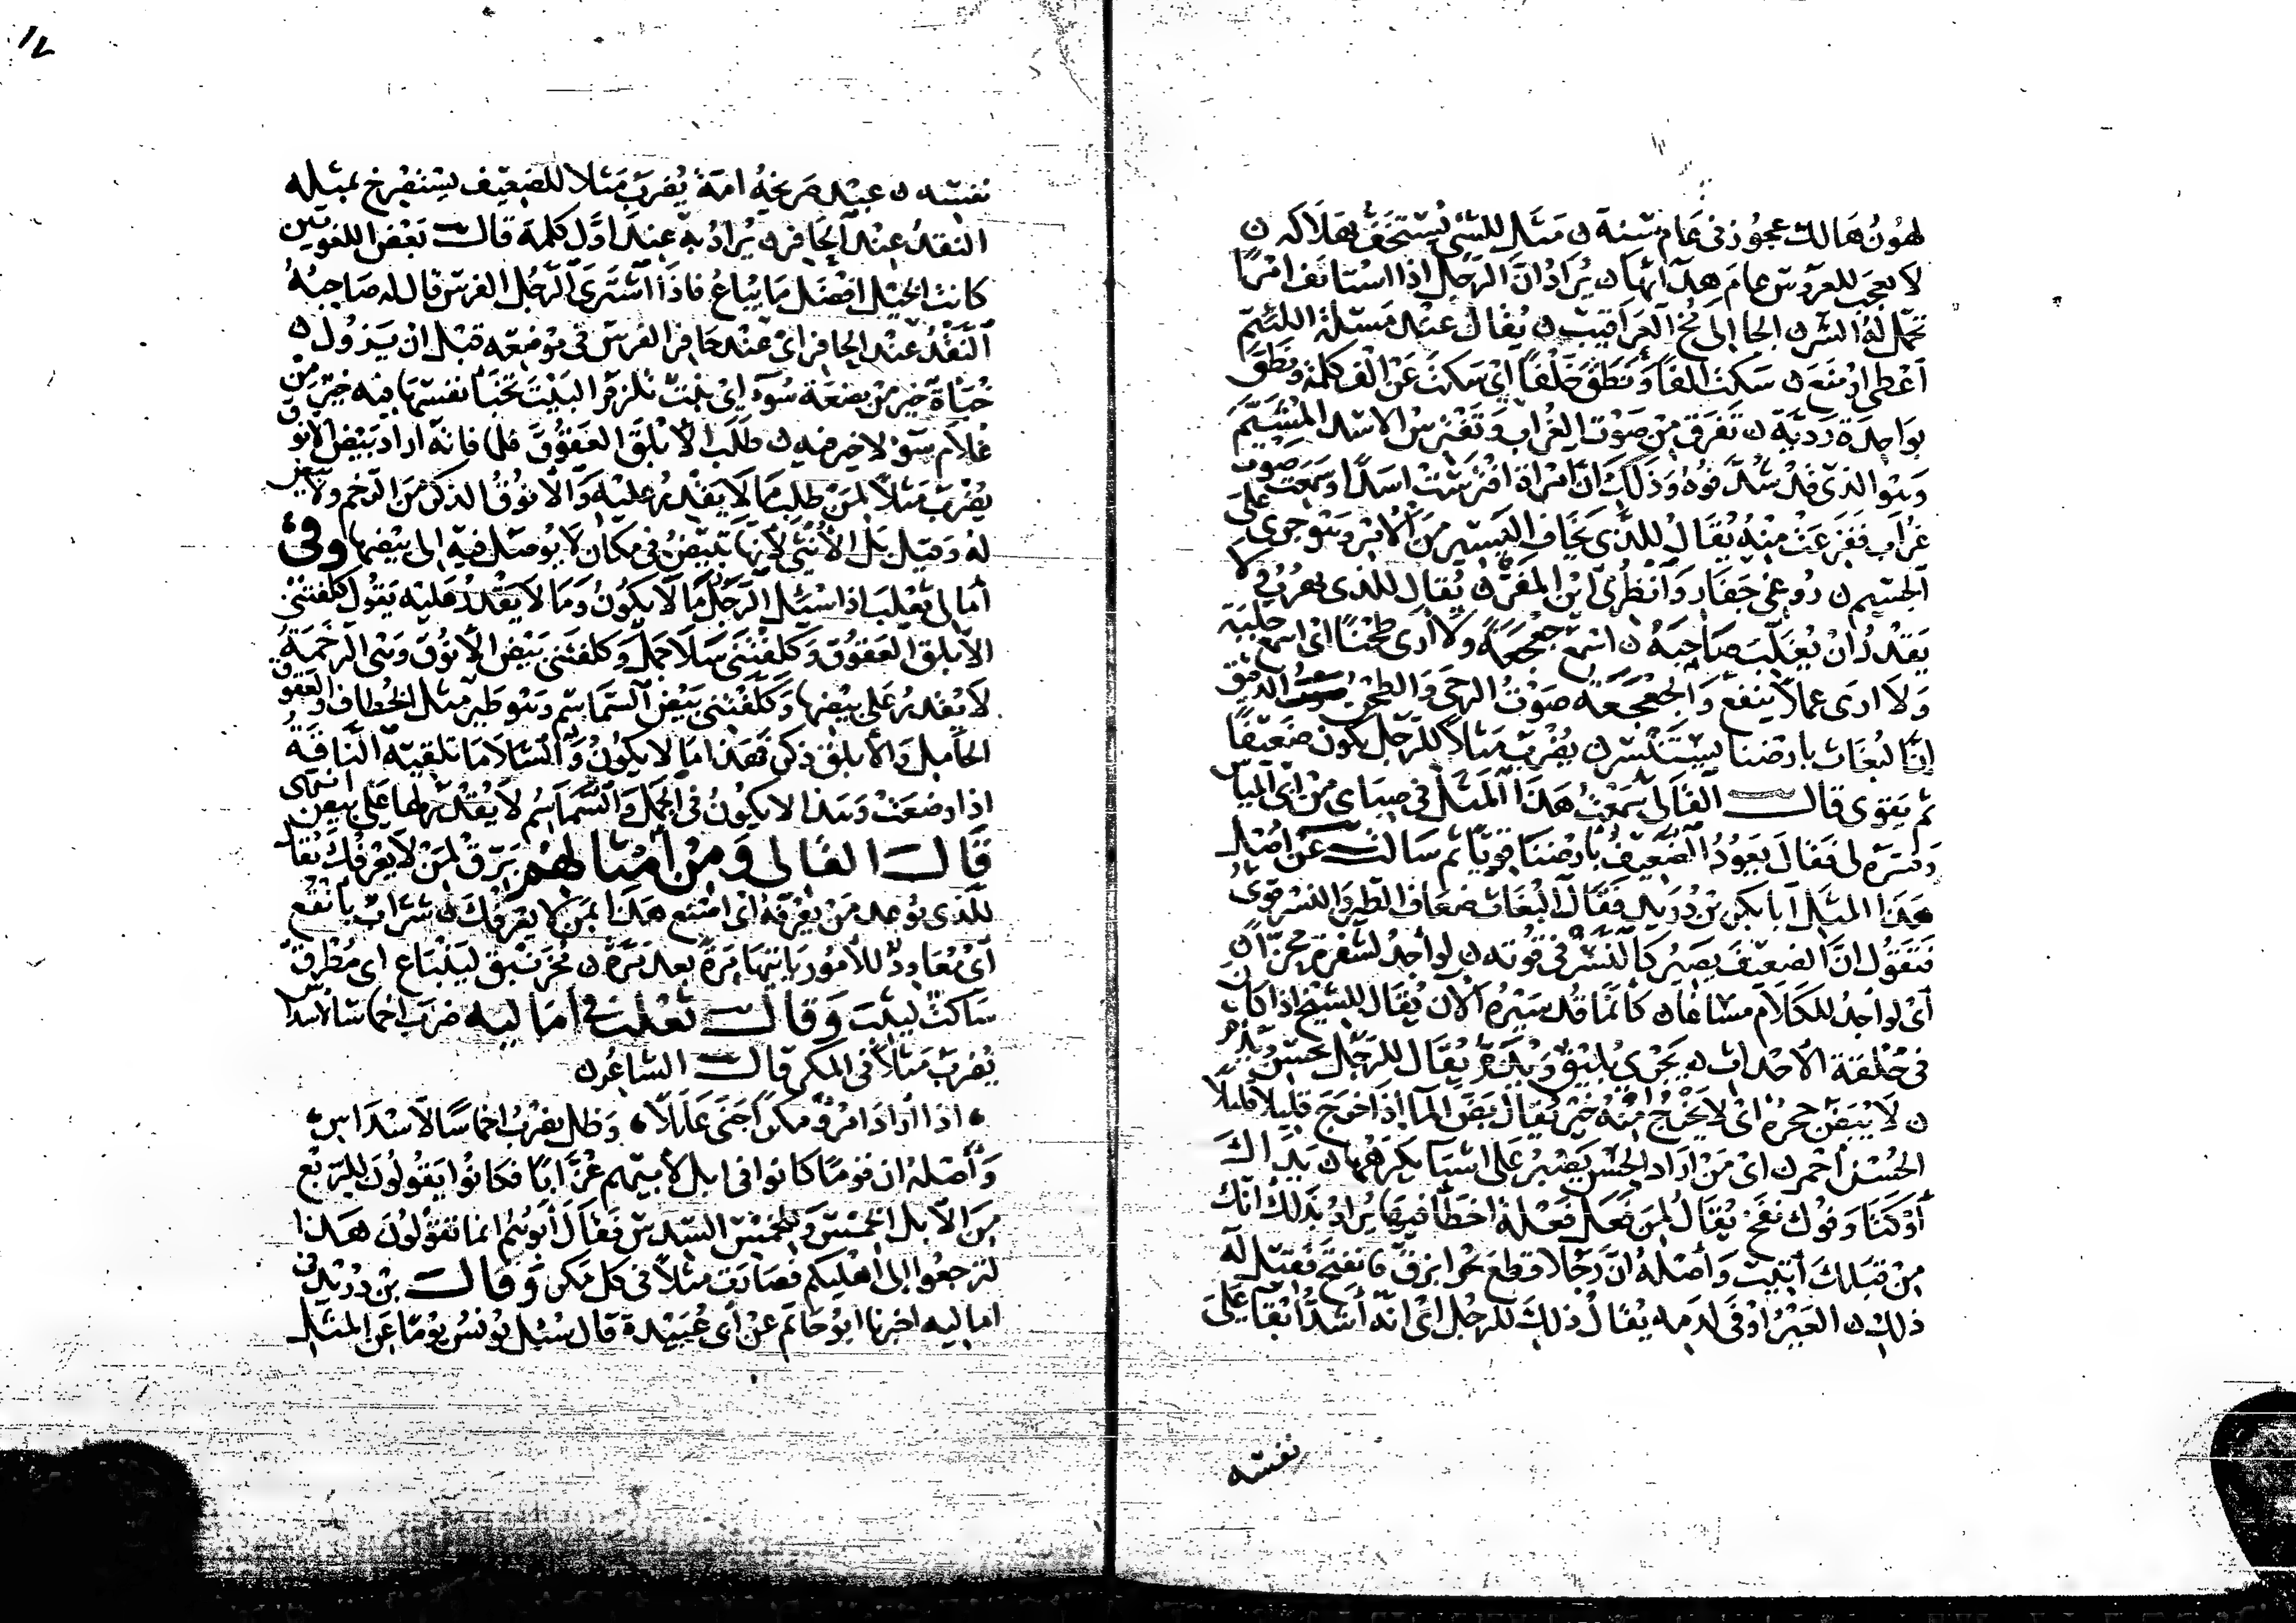 لهون هالك عجوز في عام سنة ن مثل للشي يستخف بهلاكه ن
لا يعجب للعروس عام هدائها ن يراد ان الرجل اذا استانف امرا
تجمل له الشر ن الجا الى مخ العراقيب ن يقال عند مسئلة اللئيم
اعطى او منع ن سكت الفا ونطق خلفا اى سكت عن الف كلمة ونطق
بواحدة ردية ن تفرق من صوت الغراب وتفترس الاسد المشيم
وهو الذى قد شد فوه وذلك ان امراة افترست اسدا وسمعت صوت
غراب ففزعت منه يقال للذى يخاف اليسير من الامر وهو جرى على
الجسيم ن روغى جعار وانظرى اين المفر ن يقال للذى يهرب ولا
يقدر ان يغلب صاحبه ن اسمع جعجعة ولا ارى طحنا اى اسمع جلبة
ولا ارى عملا ينفع والجعجعة صوت الرحى والطحن الدقيق
ان البغاث بارضنا يستنسر ن يضرب مثلا للرجل يكون ضعيفا
ثم يقوى قال القالى سمعت هذا المثل في صباى من ابى المياس
وفسره لى فقال يعود الضعيف بارضنا قويا ثم سالت عن اصل
هذا المثل ابا بكر بن دريد فقال البغاث ضعاف الطير والنسر قوى
فنقول ان الضعيف يصير كالنسر في قوته ن لو اجد لشفرة محزا ن
اى لو اجد للكلام مساغا ن كانما قد سيره الان يقال للشيخ اذا كان
في خلقة الاحداث ن يجرى بليق ويذم يقال للرجل يحسن ويذم
ن لا يبض حجره اى لا يخرج منه خير يقال بض الما اذا خرج قليلا قليلا
الحسن احمر ن اى من اراد الحسن يصبر على اشيا يكرهها ن يداك
اوكتا وفوك نفخ يقال لمن فعل فعلة اخطا فيها يراد بذلك انك
من قبلك اتيت واصله ان رجلا قطع بحرا بزق فانفتح فقيل له
ذلك ن العير اوقى لدمه يقال ذلك للرجل اى انه اشد ابقا على
نفسه
نفسه ن عبد صريخه امة يضرب مثلا للضعيف يستصرخ بمثله
النقد عند الحافر ن يراد به عند اول كلمة قال بعض اللغويين
كانت الخيل افضل ما يباع فاذا اشترى الرجل الفرس قال له صاحبه
النقد عند الحافر اى عند حافر الفرس في موضعه قبل ان يزول ن
خباة خير من يفعة سوء اى بنت تلزم البيت تخبا نفسها فيه خير من
غلام سوء لا خير فيه ن طلب الابلق العقوق فلما فاته اراد بيض الانوق
يضرب مثلا لمن طلب ما لا يقدر عليه والانوق الذكر من الرخم ولا بيض
له وقيل بل الانثى لانها تبيض في مكان لا يوصل فيه الى بيضها وفي
امالى ثعلب اذا سئل الرجل ما لا يكون وما لا يقدر عليه يقول كلفتنى
الابلق العقوق وكلفتنى سلا جمل وكلفتنى بيض الانوق وهى الرخمة
لا يقدر على بيضها وكلفتنى بيض السماسم وهو طير مثل الخطاف والعقوق
الحامل والابلق ذكر فهذا ما لا يكون والسلا ما تلقيه الناقة
اذا وضعت وهذا لا يكون في الجمل والسماسم لا يقدر لها على بيض انتهى
قال القالى ومن امثالهم برق لمن لا يعرفك يقال
للذى يوعد من يعرفه اى اصنع هذا بمن لا يعرفك ن شراب بانقع
اى معاود للامور ياتيها مرة بعد مرة ن مخرنبق لينباع اى مطرق
ساكت ليثب وقال ثعلب في اماليه ضرب اخماسا لاسداس
يضرب مثلا في المكر قال الشاعر ن
• اذا اراد امرؤ مكرا جنى عللا • وظل يضرب اخماسا لاسداس •
واصله ان قوما كانوا في ابل لابيهم عزابا فكانوا يقولون للربع
من الابل الخمس وللخمس السدس فقال ابوهم انما تقولون هذا
لترجعوا الى اهليكم فصارت مثلا في كل مكر وقال بن دريد في
اماليه اخبرنا ابو حاتم عن ابى عبيدة قال سئل يونس يوما عن المثل